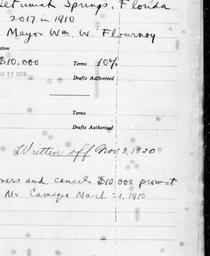 Springs, Florida
2017 in 1910
Mayor Wm. W. Flournoy
$10,000 Terms 10%
Drafts Authorized
Terms
Drafts Authorized
Written off Nov 3, 1920
and cancels $10,000 promise
Mr. Carnegie March 21, 1910